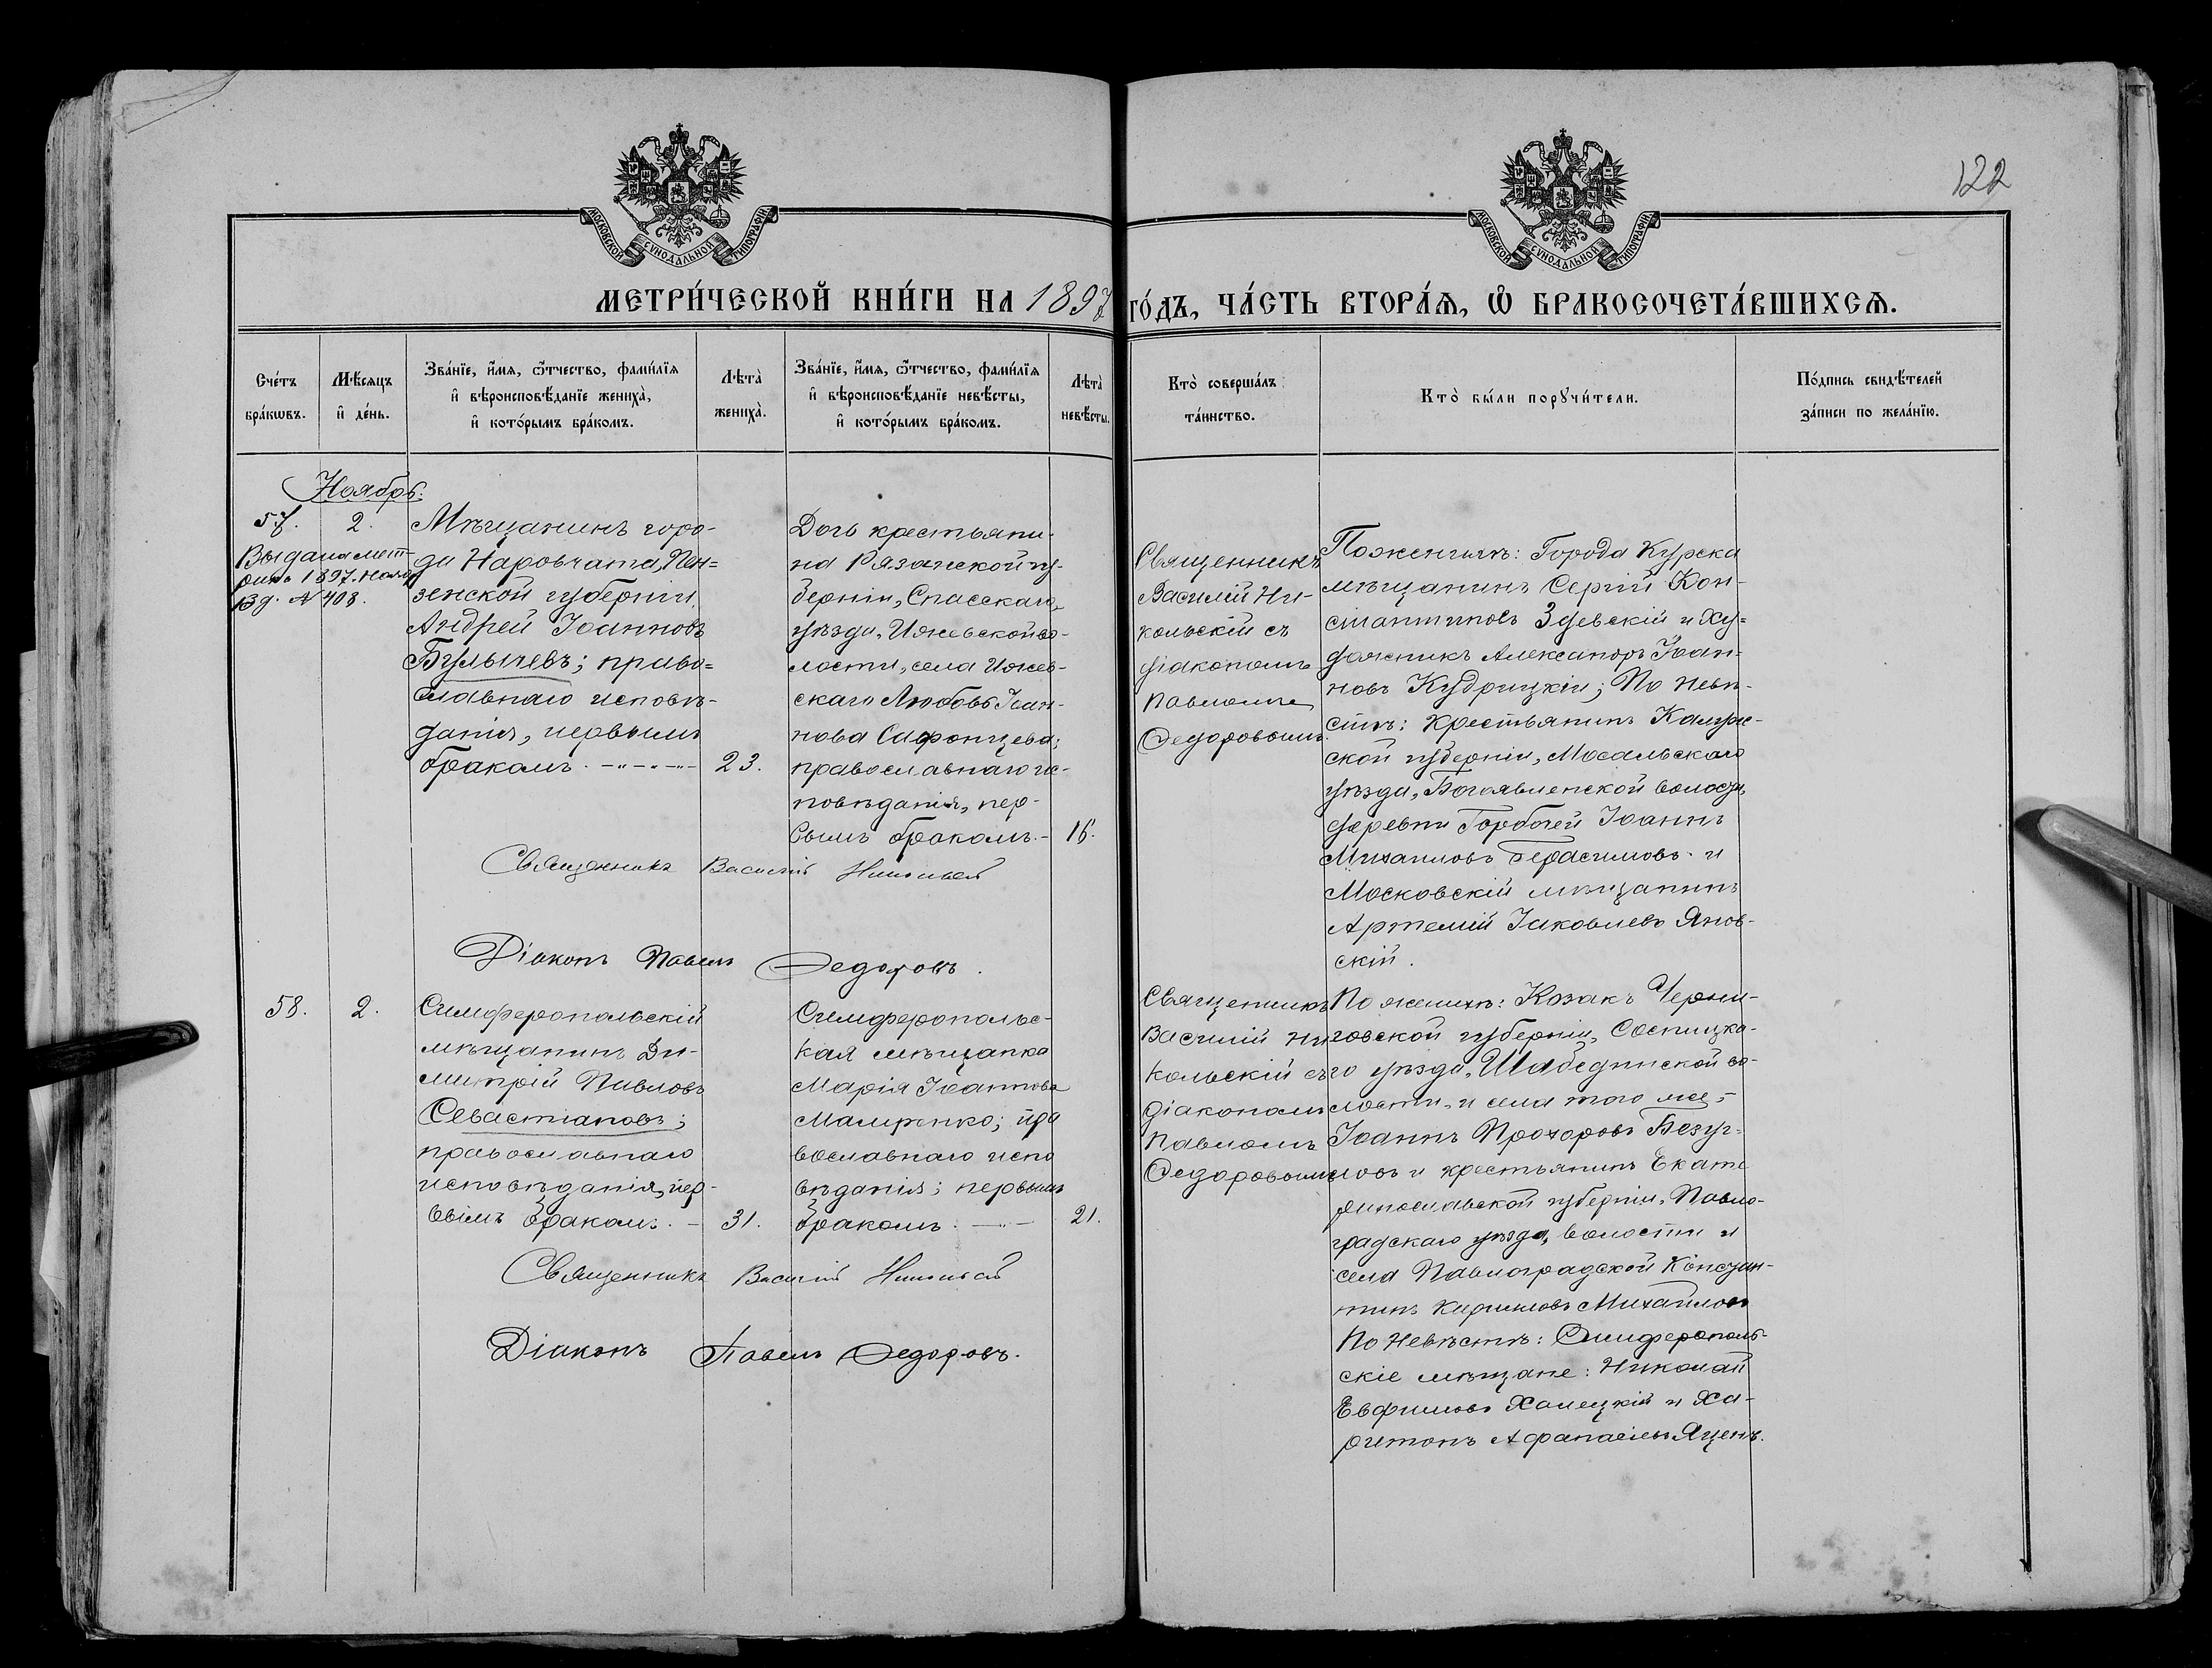 122
МОСКОВСКОЙ СѴНОДАЛЬНОЙ ТИПОГРАФІИ
МОСКОВСКОЙ СѴНОДАЛЬНОЙ ТИПОГРАФІИ
МЕТРИ́ЧЕСКОЙ КНИ́ГИ НА 1897 ГО́ДЪ, ЧА́СТЬ ВТОРА́Ѧ, Ѽ БРАКОСОЧЕТА́ВШИХСѦ.
Сче́тъ
бра́кѡвъ.
Мѣ́сяцъ
и҆ де́нь.
Зва́нїе, и҆́мѧ, ѻ҆́тчество, фами́лїѧ
и҆ вѣроисповѣ́данїе жениха̀,
и҆ кото́рымъ бра́комъ.
Лѣта̀
жениха̀.
Зва́нїе, и҆́мѧ, ѻ҆́тчество, фами́лїѧ
и҆ вѣроисповѣ́данїе невѣ́сты,
и҆ кото́рымъ бра́комъ.
Лѣта̀
невѣ́сты.
Кто̀ соверша́лъ
та́инство.
Кто̀ бы́ли порꙋчи́тели.
По́дпись свидѣ́телей
за́писи по жела́нїю.
Ноябрь.
57.
2.
Выдана мет-
рика 1897. Нояб
13 д. № 408.
Мѣщанинъ горо-
да Наровчата, Пен=
зенской губерніи,
Андрей Іоанновъ
Булычевъ; право=
славнаго исповѣ-
данія, первымъ
бракомъ.
23.
Дочь крестьяни-
на Рязанской гу-
берніи, Спасскаго
уѣзда, Ижевской во-
лости, села Ижев-
скаго Любовь Іоан-
нова Сафонцева;
православнаго ис-
повѣданія, пер-
вымъ бракомъ.-
16.
Священникъ
Василій Ни-
кольскій съ
діакономъ
Павломъ
Ѳедоровымъ.
По женихѣ: Города Курска
мѣщанинъ Сергій Кон-
стантиновъ Зуевскій и Ху=
дожникъ Александръ Іоан-
новъ Кудрицкій; По невѣ-
стѣ: Крестьянинъ Калуж-
ской губерніи, Мосальскаго
уѣзда, Богоявленской волости,
деревни Горбачей Іоаннъ
Михаиловъ Герасимовъ и
Московскій мѣщанинъ
Артемій Іаковлевъ Янов-
скій.
Священникъ Василій Никольскій
Діаконъ Павелъ Ѳедоровъ.
58.
2.
Симферопольскій
мѣщанинъ Ди-
митрій Павловъ
Севастіановъ;
православнаго
исповѣданія, пер-
вымъ бракомъ. -
31.
Симферопольс-
кая мѣщанка
Марія Іоаннова
Малиренко; пра
вославнаго испо
вѣданія; первымъ
бракомъ.
21.
Священникъ
Василій Ни
кольскій съ
діакономъ
Павломъ
Ѳедоровымъ
По женихѣ: Козакъ Черни-
говской губерніи, Сосницка-
го уѣзда, волости
лости, и села того же,
Іоаннъ Прохоровъ Безуг-
ловъ и крестьянинъ Екате
ринославской губерніи, Павло-
градскаго уѣзда, волости и
села Павлоградской Констан-
тинъ Кирилловъ Михайловъ
По Невѣстѣ: Симферополь-
скіе мѣщане: Николай
Евфимовъ Халецкій и Ха-
ритонъ Аѳанасіевъ Яценъ.
Священникъ Василій Никольскій
Діаконъ Павелъ Ѳедоровъ.